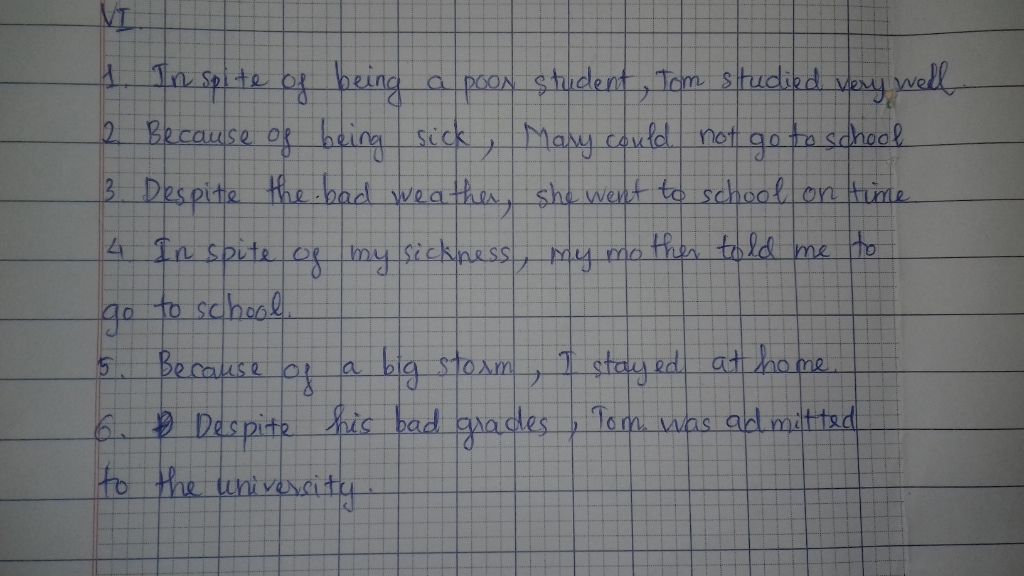 VI.
1. In spite of being a poor student, Tom studied very well
2 Because of being sick, Mary could not go to school
3. Despite the bad weather, she went to school on time
4. In spite of my sickness, my mother told me to
go to school.
5. Because of a big storm, I stayed at home.
6. Despite his bad grades, Tom was admitted
to the university.